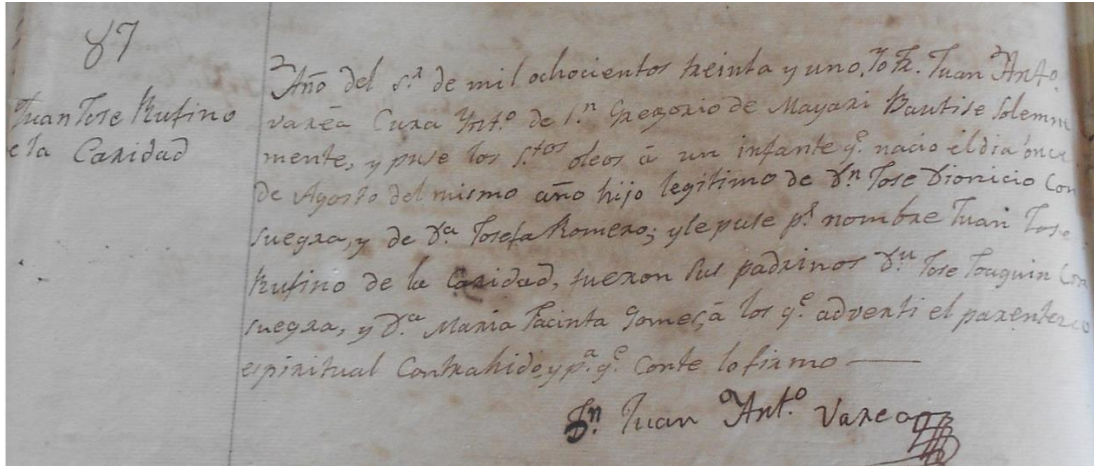 87
Juan Jose Rufino
e la Caridad
Año del s.r de mil ochocientos treinta y uno, Yo Fr. Juan Anto.
varea Cura Ynt.o de S.n Gregorio de Mayari Bautise Solemne
mente, y puse los S.tos oleos á un infante q.e nacio el dia once
de Agosto del mismo año hijo legitimo de D.n Jose Dionicio Con
suegra, y de D.a Josefa Romero; y le puse p.r nombre Juan Jose
Rufino de la Caridad, fueron sus padrinos D.n Jose Joaquin Con
suegra, y D.a Maria Jacinta Gomes, á los q.e adverti el parentesco
espiritual Contrahido, y p.a q.e Conte lo firmo
Juan Ant.o Varea